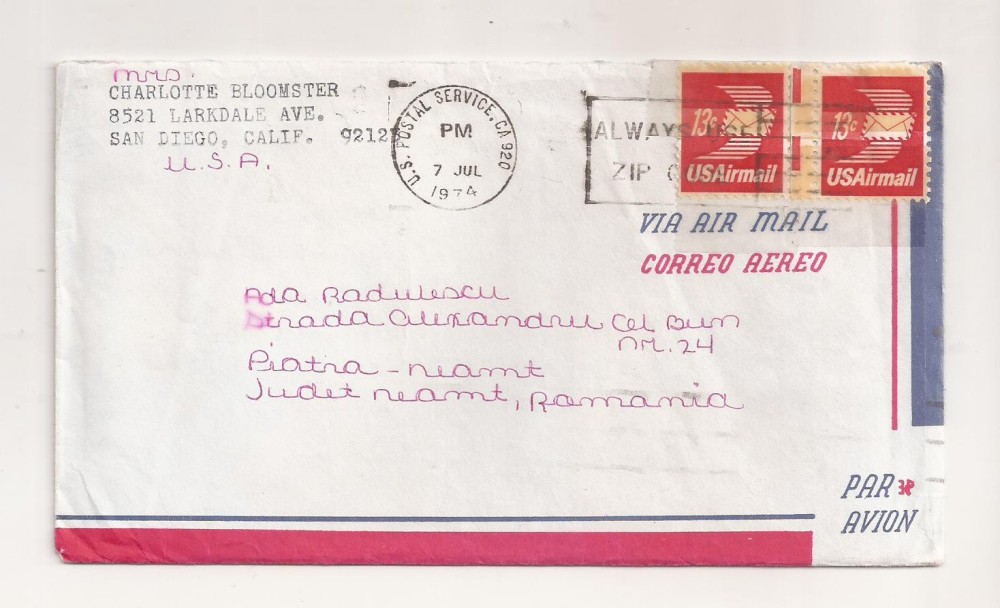 Mrs.
CHARLOTTE BLOOMSTER
8521 LARKDALE AVE.
SAN DIEGO, CALIF. 9212
U.S.A.
U.S. POSTAL SERVICE, CA 920
PM
7 JUL
1974
ALWAYS USE
ZIP
13c
USAirmail
13c
USAirmail
VIA AIR MAIL
CORREO AEREO
Ada Radulescu
Strada Alexandru Cel Bun
nr. 24
Piatra - neamt
Judet neamt, Romania
PAR
AVION